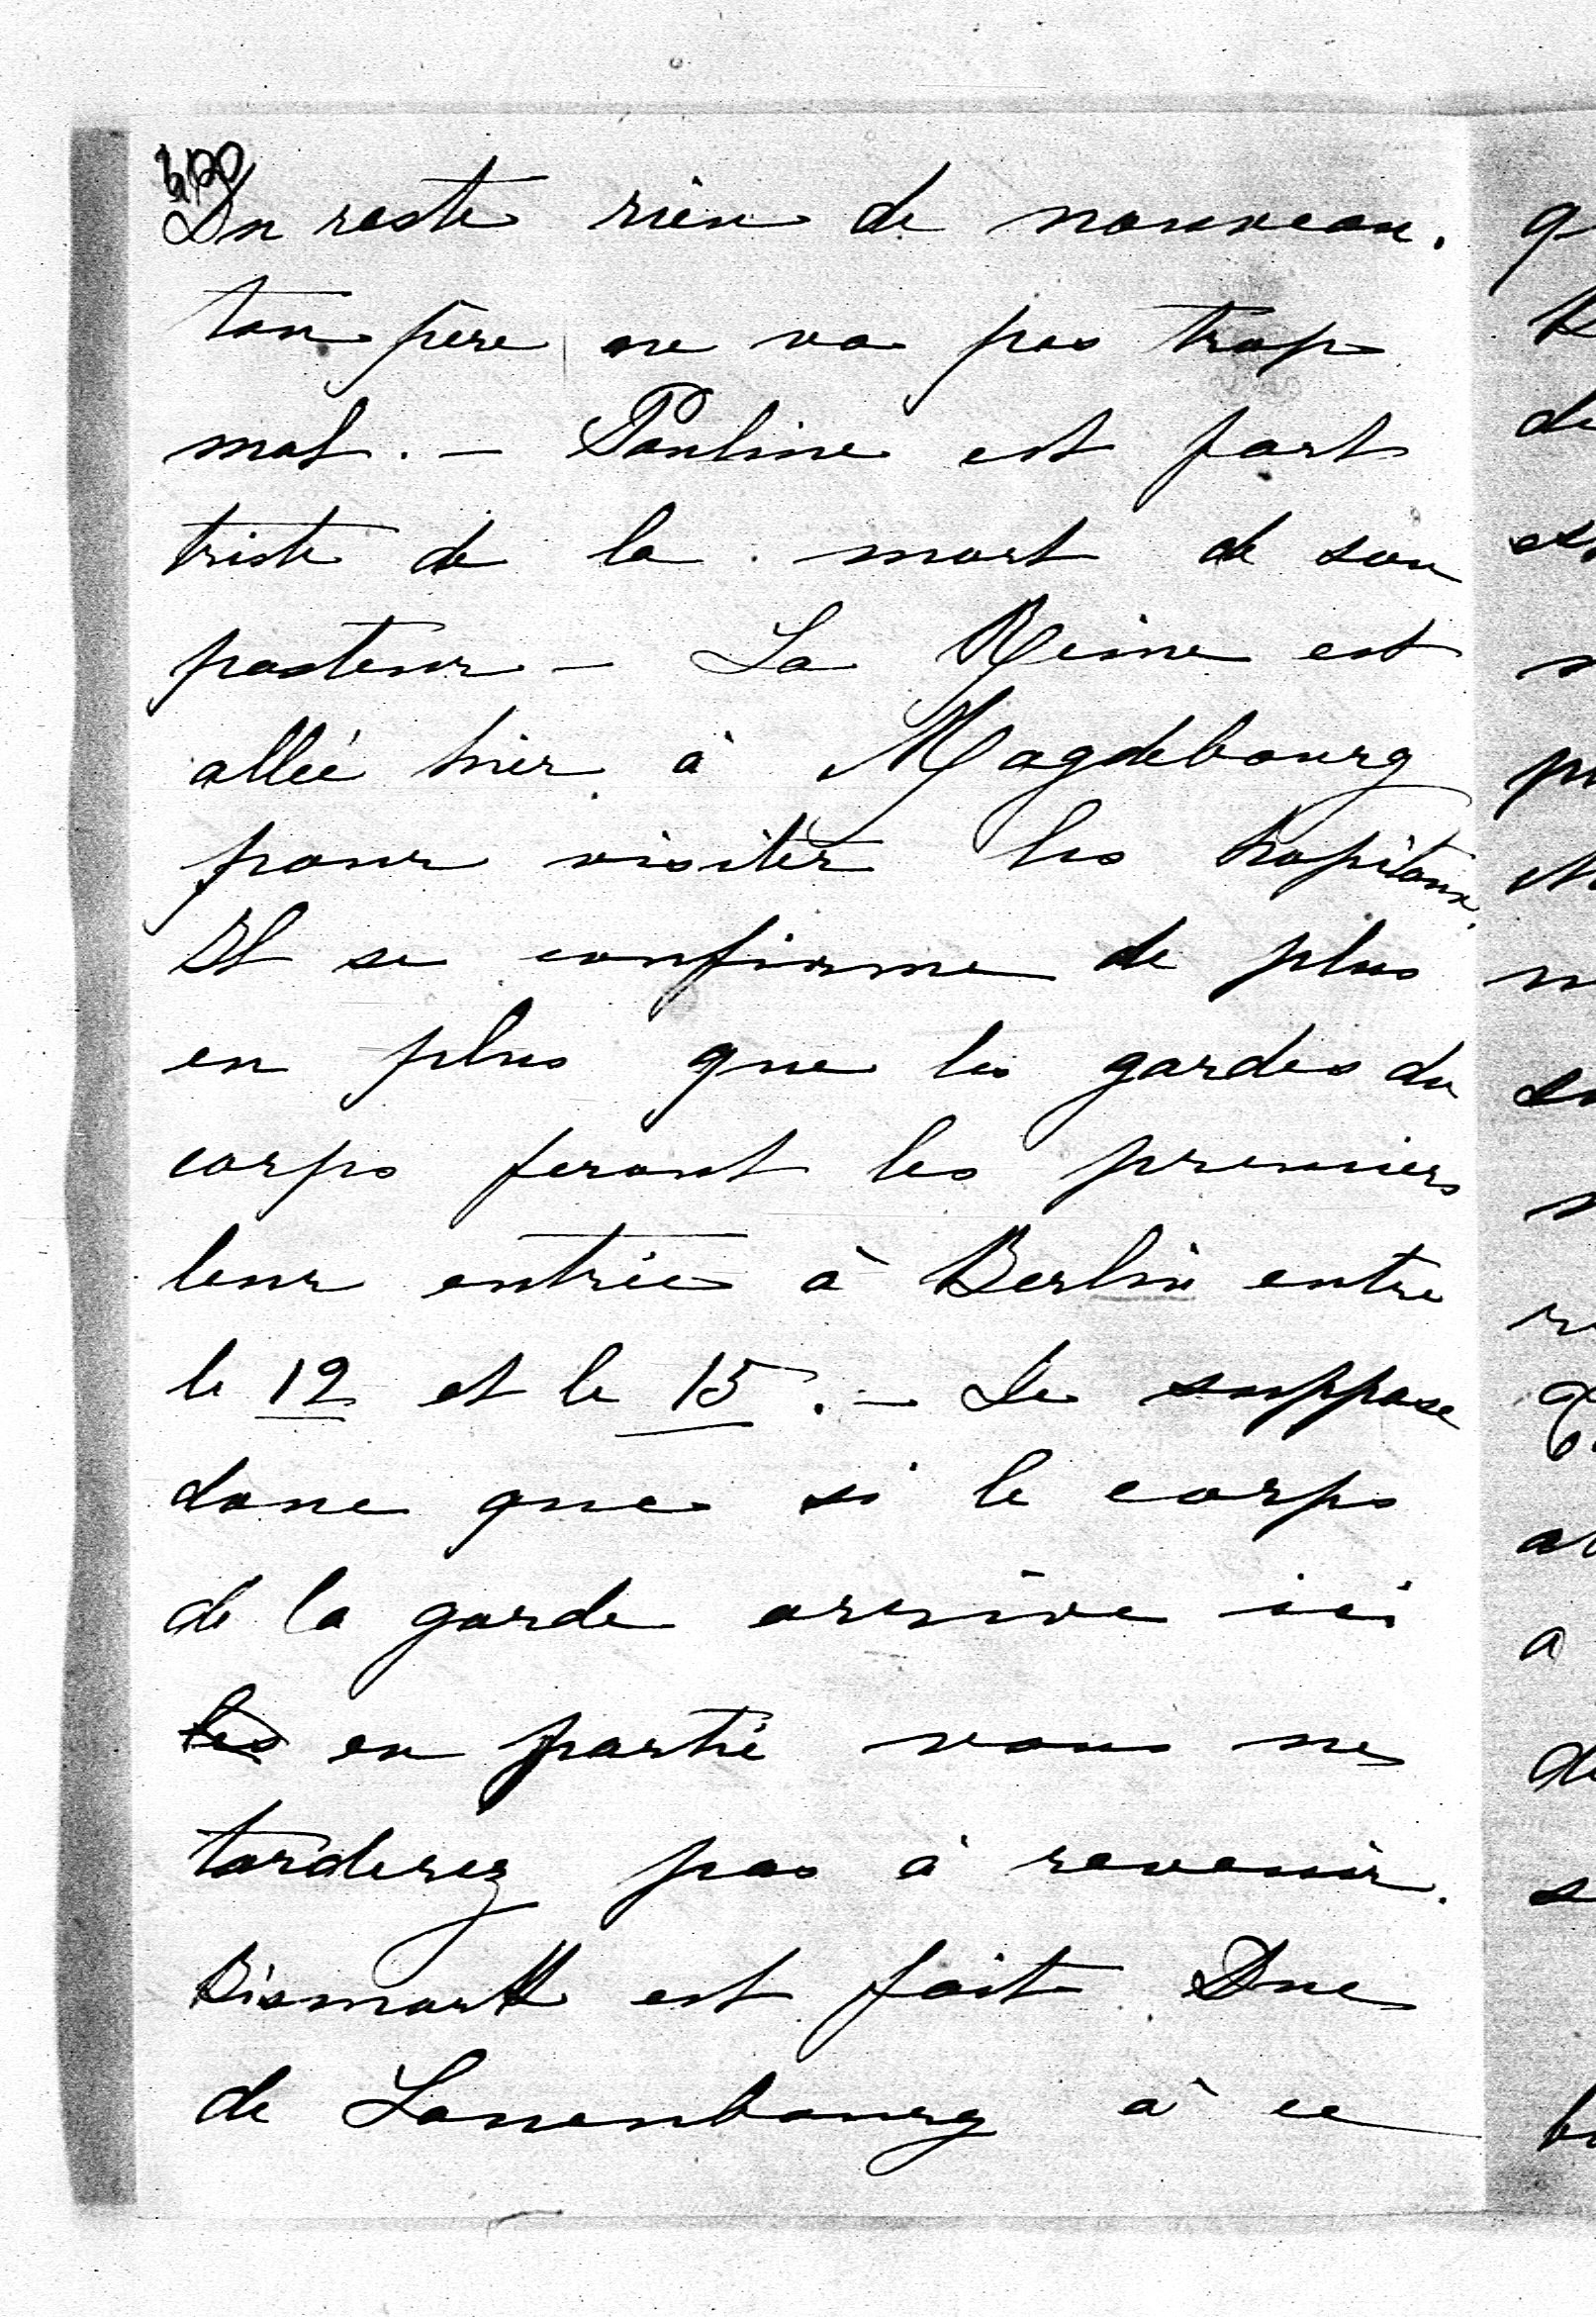 Du reste rien de nouveau.
ton père ne va pas trop
mal. – Pauline est fort
triste de la mort de son
pasteur – La Reine est
allée hier à Magdebourg
pour visiter les hopitaux.
Il se confirme de plus
en plus que les gardes du
corps feront les premiers
leur entrée à Berlin entre
le 12 et le 15. – Je suppose
donc que si le corps
de la garde arrive ici
les en partie vous ne
tarderez pas à revenir.
Bismark est fait Duc
de Lauenbourg à ce